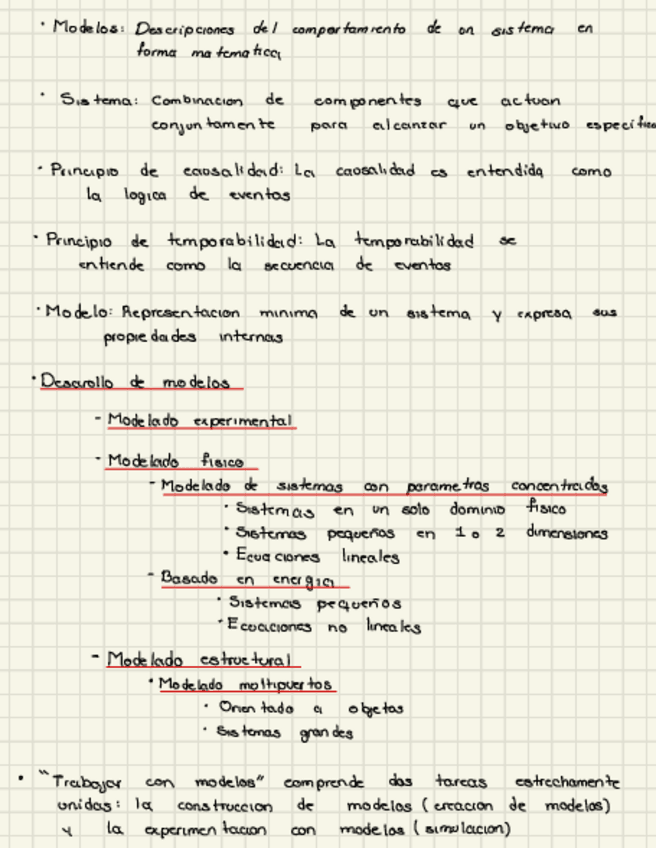 · Modelos: Descripciones del comportamiento de un sistema en
forma matematica
· Sistema: Combinacion de componentes que actuan
conjuntamente para alcanzar un objetivo especifico
· Principio de causalidad: La causalidad es entendida como
la logica de eventos
· Principio de temporabilidad: La temporabilidad se
entiende como la secuencia de eventos
· Modelo: Representacion minima de un sistema y expresa sus
propiedades internas
· Desarollo de modelos
- Modelado experimental
- Modelado fisico
- Modelado de sistemas con parametros concentrados
· Sistemas en un solo dominio fisico
· Sistemas pequeños en 1 o 2 dimensiones
· Ecuaciones lineales
- Basado en energia
· Sistemas pequeños
· Ecuaciones no lineales
- Modelado estructural
· Modelado multipuertos
· Orientado a objetos
· Sistemas grandes
· "Trabajar con modelos" comprende dos tareas estrechamente
unidas: la construccion de modelos (creacion de modelos)
y la experimentacion con modelos (simulacion)